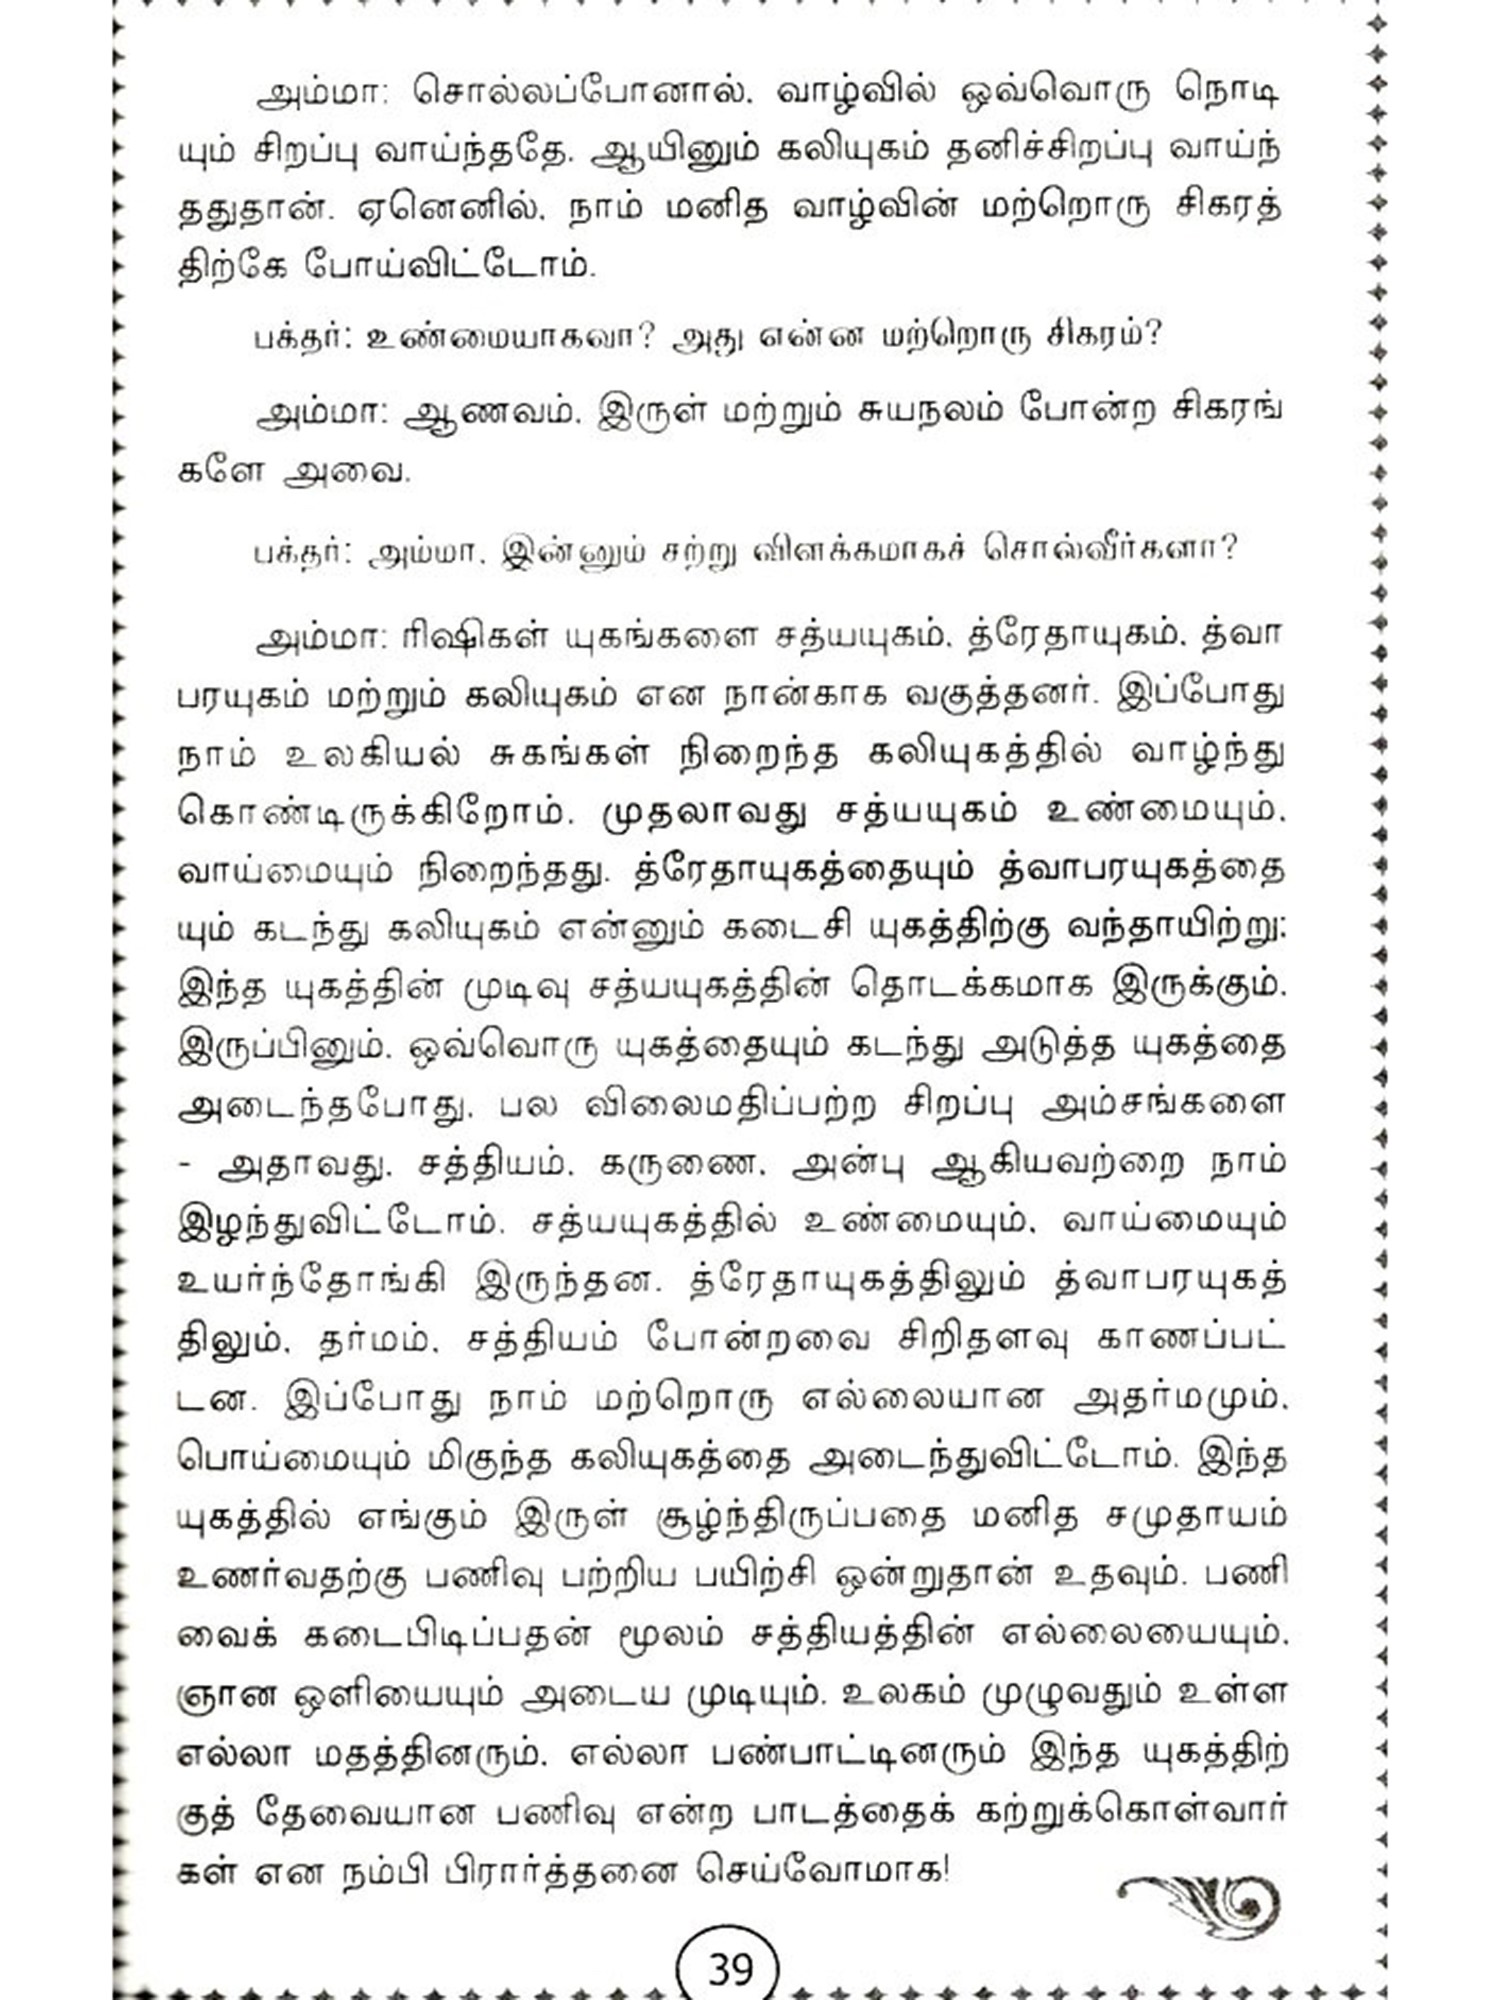 அம்மா: சொல்லப்போனால், வாழ்வில் ஒவ்வொரு நொடி
யும் சிறப்பு வாய்ந்ததே. ஆயினும் கலியுகம் தனிச்சிறப்பு வாய்ந்
ததுதான். ஏனெனில், நாம் மனித வாழ்வின் மற்றொரு சிகரத்
திற்கே போய்விட்டோம்.
பக்தர்: உண்மையாகவா? அது என்ன மற்றொரு சிகரம்?
அம்மா: ஆணவம், இருள் மற்றும் சுயநலம் போன்ற சிகரங்
களே அவை.
பக்தர்: அம்மா, இன்னும் சற்று விளக்கமாகச் சொல்வீர்களா?
அம்மா: ரிஷிகள் யுகங்களை சத்யயுகம், த்ரேதாயுகம், த்வா
பரயுகம் மற்றும் கலியுகம் என நான்காக வகுத்தனர். இப்போது
நாம் உலகியல் சுகங்கள் நிறைந்த கலியுகத்தில் வாழ்ந்து
கொண்டிருக்கிறோம். முதலாவது சத்யயுகம் உண்மையும்,
வாய்மையும் நிறைந்தது. த்ரேதாயுகத்தையும் த்வாபரயுகத்தை
யும் கடந்து கலியுகம் என்னும் கடைசி யுகத்திற்கு வந்தாயிற்று;
இந்த யுகத்தின் முடிவு சத்யயுகத்தின் தொடக்கமாக இருக்கும்.
இருப்பினும், ஒவ்வொரு யுகத்தையும் கடந்து அடுத்த யுகத்தை
அடைந்தபோது, பல விலைமதிப்பற்ற சிறப்பு அம்சங்களை
- அதாவது, சத்தியம், கருணை, அன்பு ஆகியவற்றை நாம்
இழந்துவிட்டோம். சத்யயுகத்தில் உண்மையும், வாய்மையும்
உயர்ந்தோங்கி இருந்தன. த்ரேதாயுகத்திலும் த்வாபரயுகத்
திலும், தர்மம், சத்தியம் போன்றவை சிறிதளவு காணப்பட்
டன. இப்போது நாம் மற்றொரு எல்லையான அதர்மமும்,
பொய்மையும் மிகுந்த கலியுகத்தை அடைந்துவிட்டோம். இந்த
யுகத்தில் எங்கும் இருள் சூழ்ந்திருப்பதை மனித சமுதாயம்
உணர்வதற்கு பணிவு பற்றிய பயிற்சி ஒன்றுதான் உதவும். பணி
வைக் கடைபிடிப்பதன் மூலம் சத்தியத்தின் எல்லையையும்,
ஞான ஒளியையும் அடைய முடியும். உலகம் முழுவதும் உள்ள
எல்லா மதத்தினரும், எல்லா பண்பாட்டினரும் இந்த யுகத்திற்
குத் தேவையான பணிவு என்ற பாடத்தைக் கற்றுக்கொள்வார்
கள் என நம்பி பிரார்த்தனை செய்வோமாக!
39